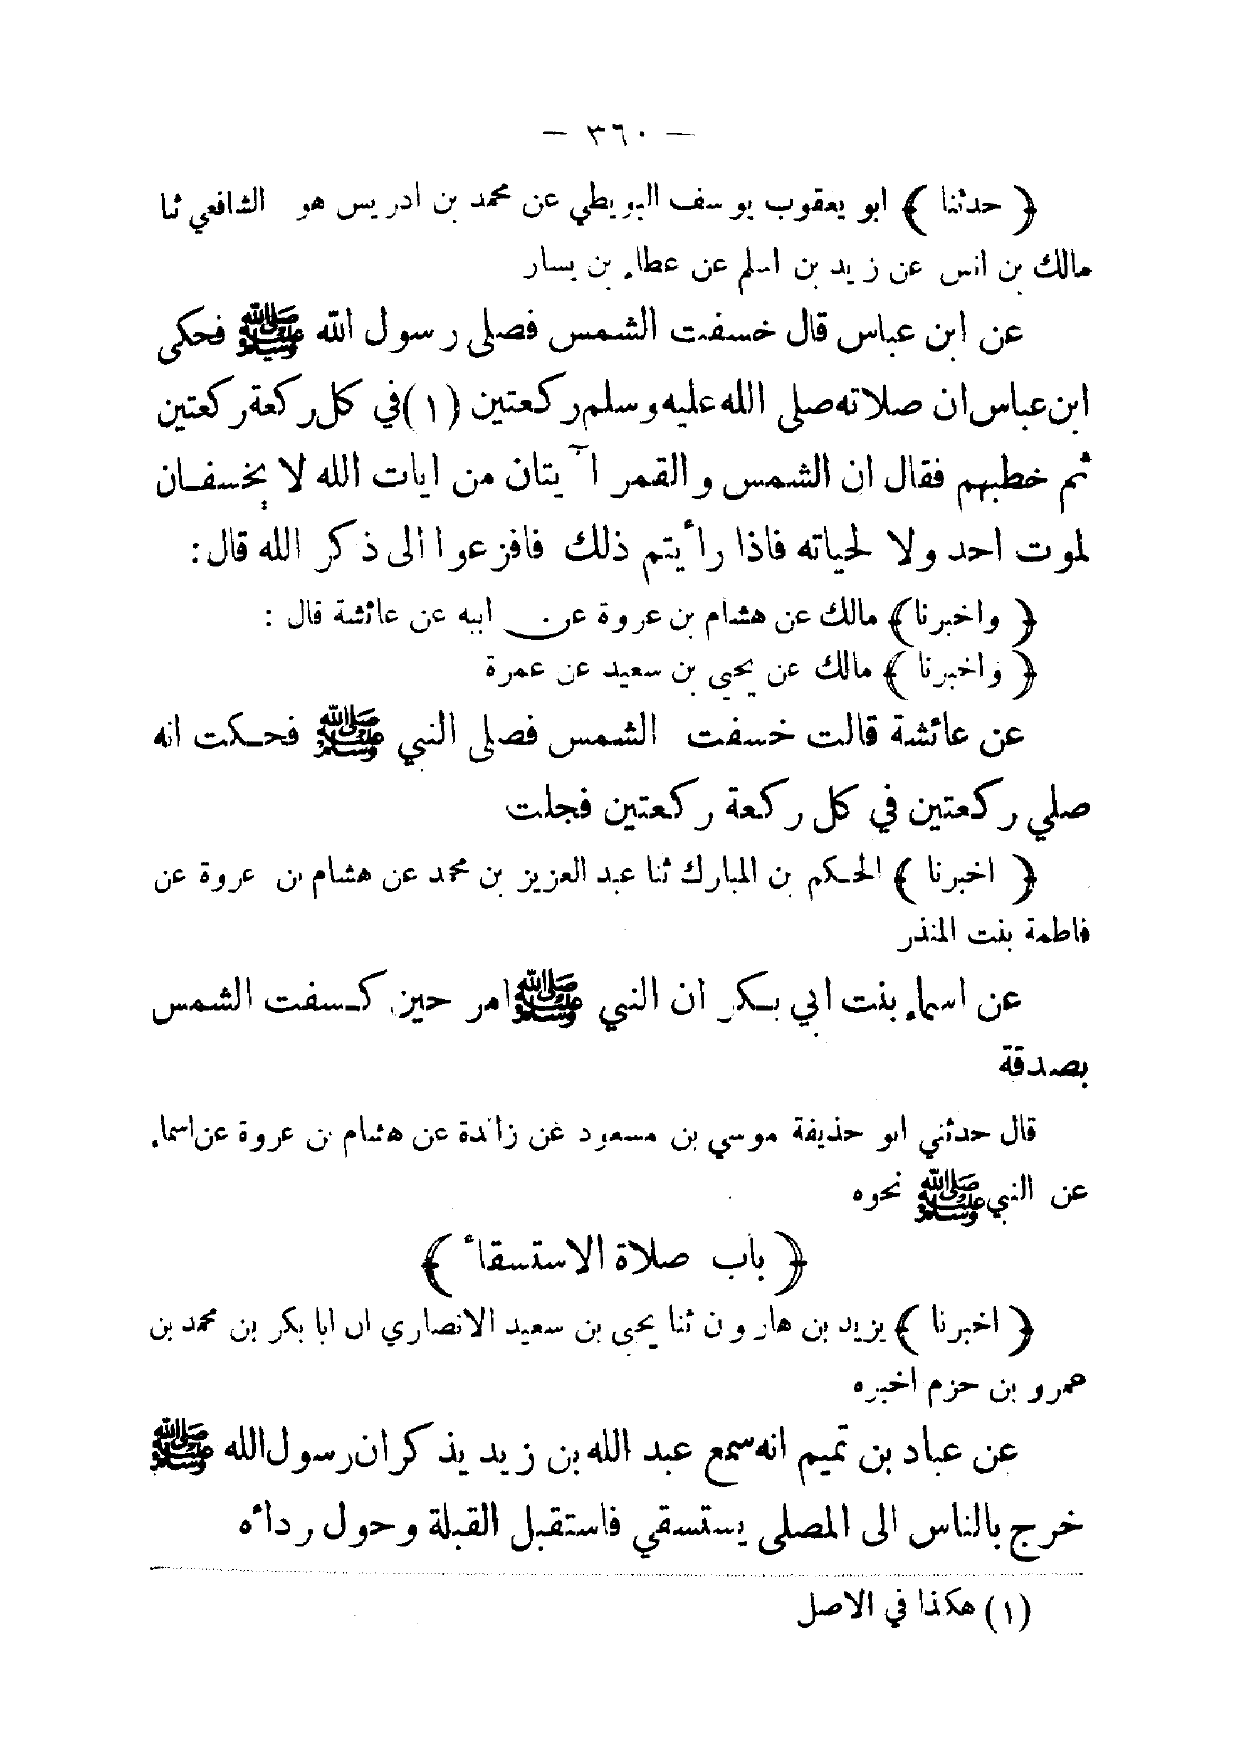 — ٣٦٠ —
﴿ حدثنا ﴾ ابو يعقوب يوسف البويطي عن محمد بن ادريس هو الشافعي ثنا
مالك بن انس عن زيد بن اسلم عن عطاء بن يسار
عن ابن عباس قال خسفت الشمس فصلى رسول الله ﷺ فحكى
ابن عباس ان صلاته صلى الله عليه وسلم ركعتين (١) في كل ركعة ركعتين
ثم خطبهم فقال ان الشمس والقمر آيتان من ايات الله لا يخسفان
لموت احد ولا لحياته فاذا رأيتم ذلك فافزعوا الى ذكر الله قال :
﴿ واخبرنا ﴾ مالك عن هشام بن عروة عن ابيه عن عائشة قال :
﴿ واخبرنا ﴾ مالك عن يحيى بن سعيد عن عمرة
عن عائشة قالت خسفت الشمس فصلى النبي ﷺ فحكت انه
صلي ركعتين في كل ركعة ركعتين فجلت
﴿ اخبرنا ﴾ الحكم بن المبارك ثنا عبد العزيز بن محمد عن هشام بن عروة عن
فاطمة بنت المنذر
عن اسماء بنت ابي بكر ان النبي ﷺ امر حين كسفت الشمس
بصدقة
قال حدثني ابو حذيفة موسي بن مسعود عن زائدة عن هشام بن عروة عن اسماء
عن النبي ﷺ نحوه
﴿ باب صلاة الاستسقاء ﴾
﴿ اخبرنا ﴾ يزيد بن هارون ثنا يحيى بن سعيد الانصاري ان ابا بكر بن محمد بن
عمرو بن حزم اخبره
عن عباد بن تميم انه سمع عبد الله بن زيد يذكر ان رسول الله ﷺ
خرج بالناس الى المصلى يستسقي فاستقبل القبلة وحول رداءه
(١) هكذا في الاصل